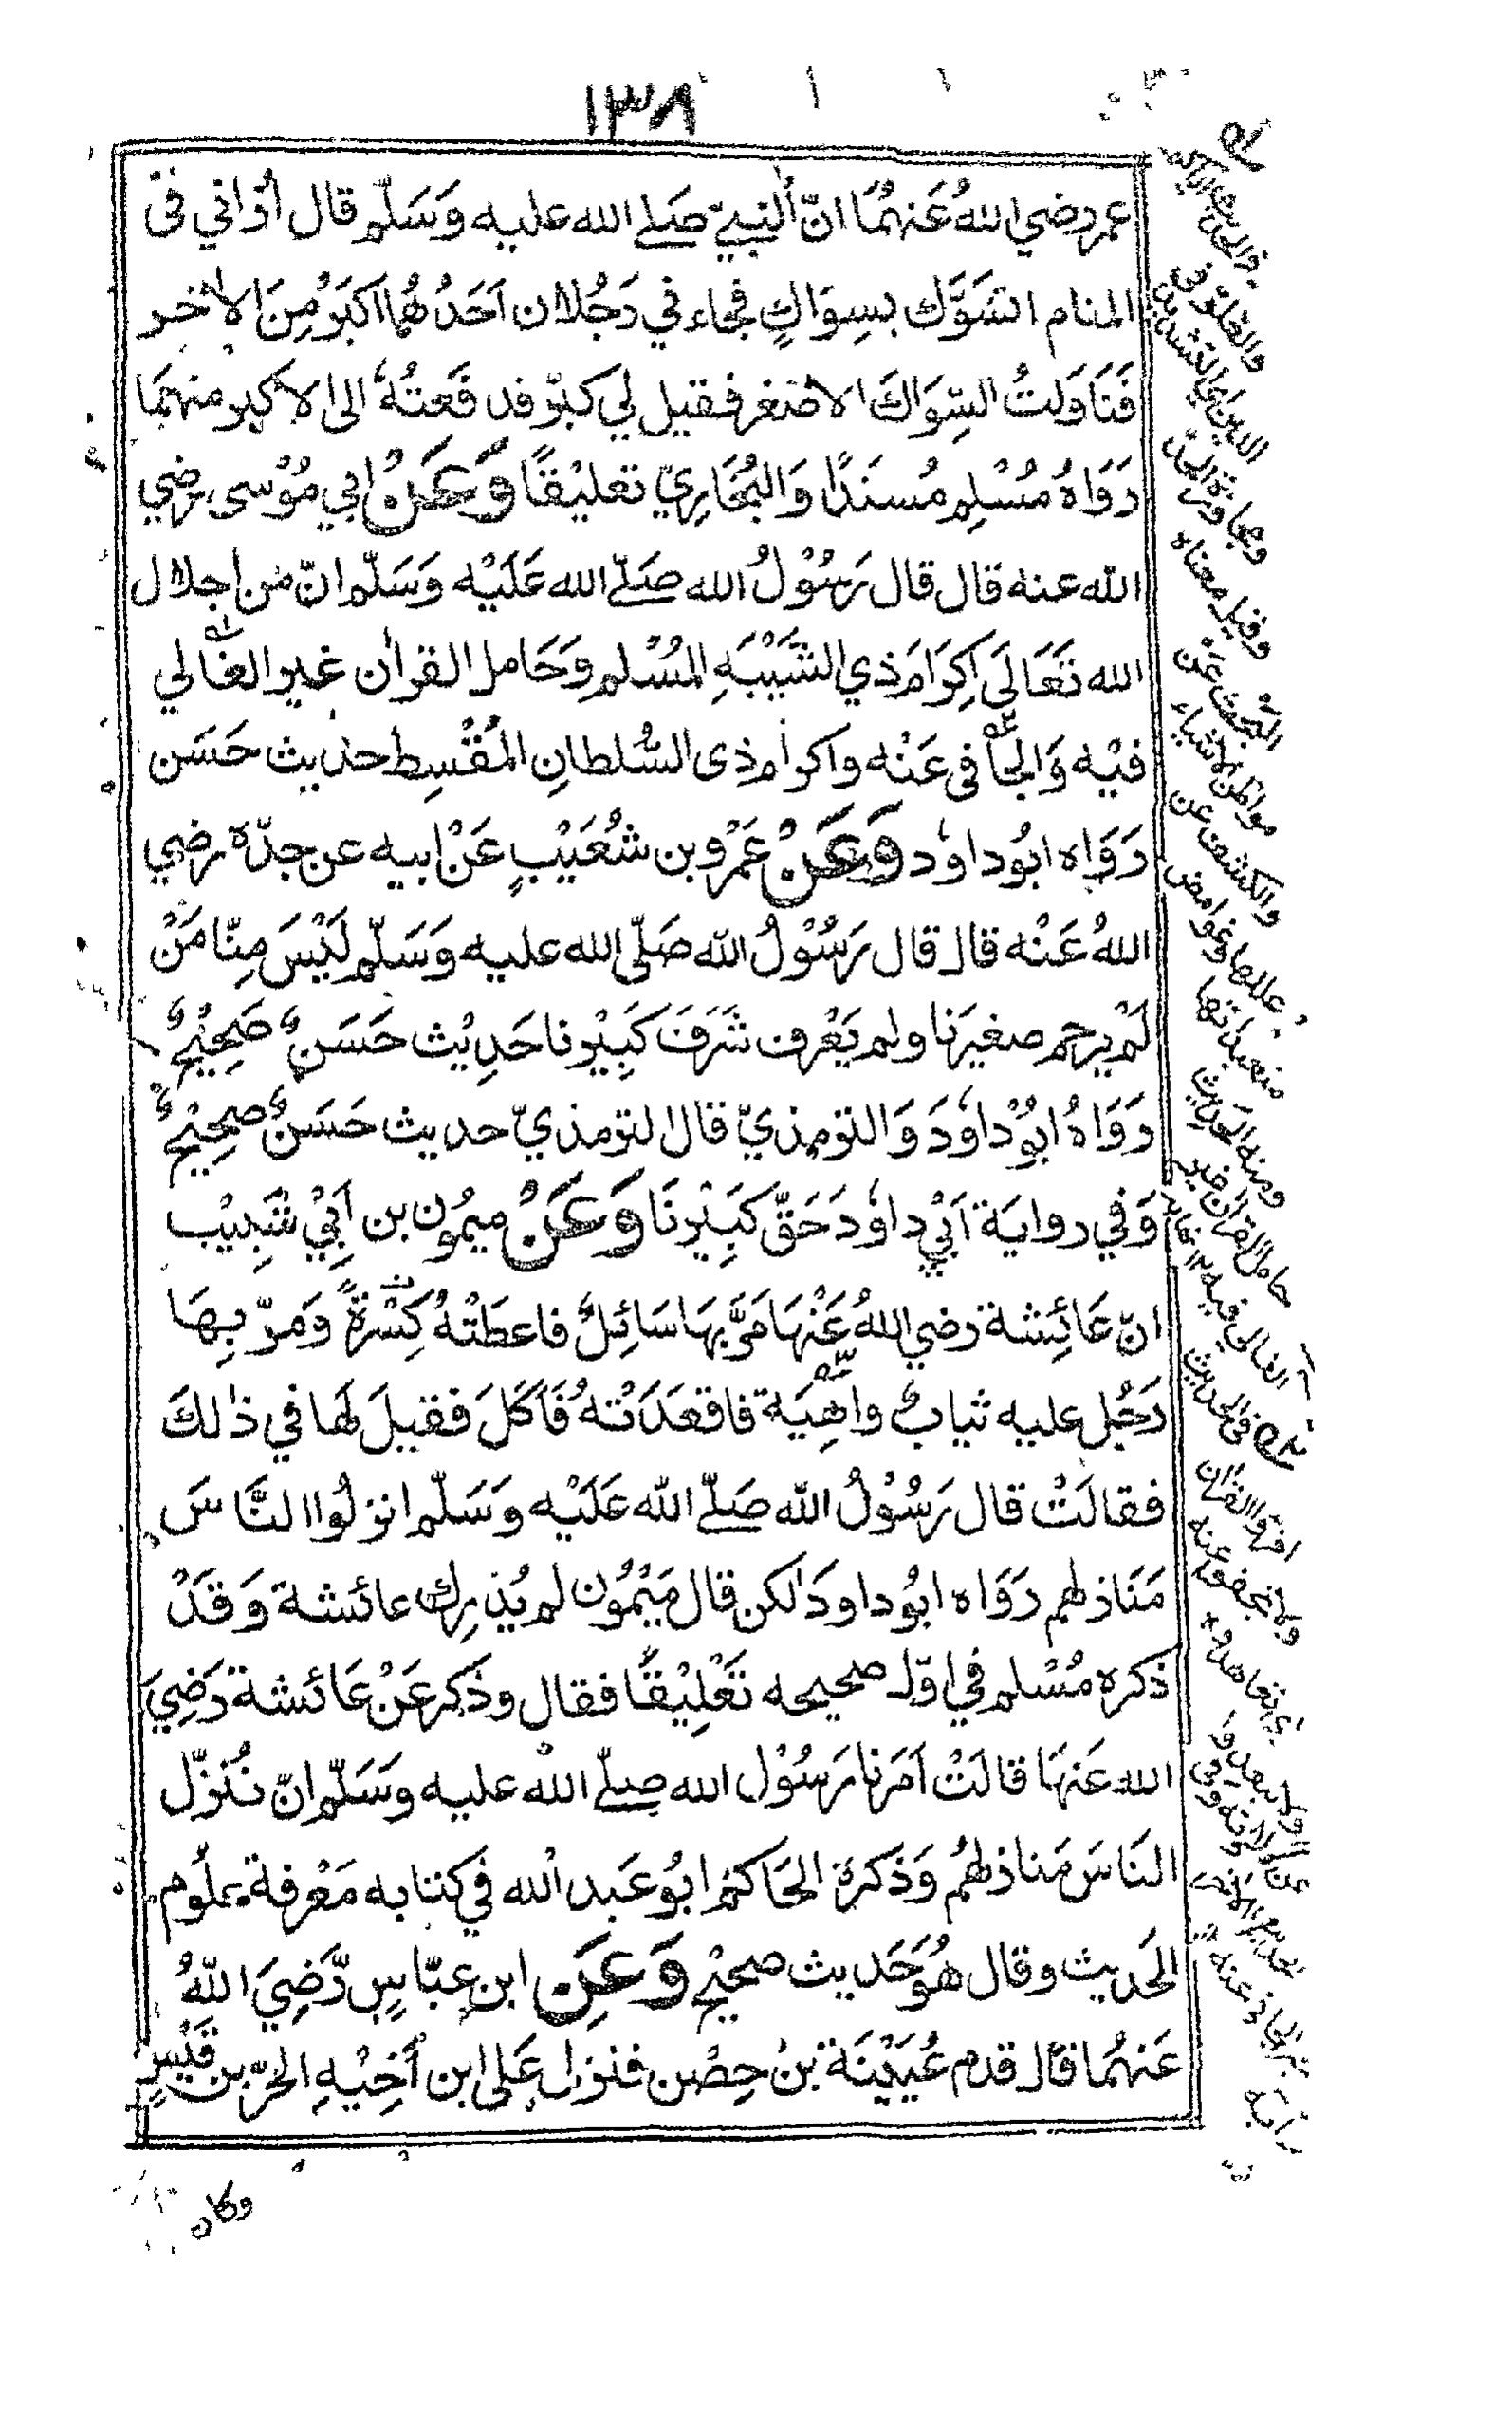 ١٣٨
عمر رضي اللهُ عَنهُمَا انّ النبيّ صَلى الله عليه وَسَلّم قال أرَاني فى
المنام اتسَوَّك بسِوَاكٍ فجاء ني رَجُلان اَحَدُهُما اكبَرُ مِنَ الاٰخر
فَنَاوَلتُ السِّوَاكَ الاصْغر فقيل لي كبّر فدفَعتُهُ الى الاكبر منهمَا
رَوَاهُ مُسْلِم مُسنَدًا وَالبُخَارِيّ تعليْقًا وَعَنْ ابي مُوْسى رضي
الله عنه قال قال رَسُوْلُ الله صَلّى الله عَلَيْه وَسَلّم انّ مِن اجلال
الله تَعَالَى اِكرَامَ ذي الشَّيْبَةِ المُسْلم وَحَامل القراٰن غير الغَالي
فيْه وَالجَافى عَنْه واكرام ذى السُّلطانِ المُقْسِط حديث حَسَن
رَوَاه ابُوداود وَعَنْ عَمْرو بن شُعَيْبٍ عَنْ ابيه عن جدّه رضي
اللهُ عَنْه قال قال رَسُوْلُ الله صَلّى الله عليه وَسَلّم لَيْسَ مِنّا مَنْ
لَمْ يرحم صغيرَنا ولم يَعْرف شَرَفَ كَبِيْرِنا حَدِيْث حَسَنٌ صَحِيْحٌ
رَوَاهُ ابُوْداوٗدَ وَالترمِذيّ قال الترمذيّ حديث حَسَنٌ صحِيْحٌ
وَفي رواية اَبْي داوٗد حَقّ كَبِيْرنَا وَعَنْ ميمُون بن اَبِيْ شَبِيْب
انّ عَائِشة رضي اللهُ عَنْهَا مَرَّ بهَا سَائِلٌ فاعطَتْهُ كِسْرةً وَمَرّ بِهَا
رَجُل عليه ثيابٌ واهِيَة فاقعَدَتْهُ فَاَكَلَ فقيلَ لَهَا في ذٰلكَ
فقالَتْ قال رَسُوْلُ الله صَلّى الله عَلَيْه وَسَلّم انزلُوا النَّاسَ
مَنَازلهم رَوَاه ابُوداودَ لٰكن قال مَيْمُون لم يُدْرِك عائشة وَقَدْ
ذكره مُسْلم في اوّل صحيحه تَعْلِيْقًا فقال وذَكر عَنْ عَائشة رَضِيَ
الله عَنهَا قالَتْ اَمَرنا رَسُوْل الله صلّى الله عليه وسَلّم انّ نُنَزّل
النَاسَ مَنازلهُم وَذكرهُ الحَاكمُ ابُو عَبد الله في كتابه مَعْرفة علُوم
الحَديث وقال هُوَ حَديث صحيْح وَعَنِ ابن عِبّاسٍ رَّضِيَ اللهُ
عَنهُما قال قدم عُيَيْنَة بنُ حِصْن فنزل عَلى ابن أخِيْهِ الحُرّ بن قَيْسٍ
وكان
وقيل معناه
الغالي فيه
في الحديث
اقرؤا القرآن
ولا تجفوا عنه